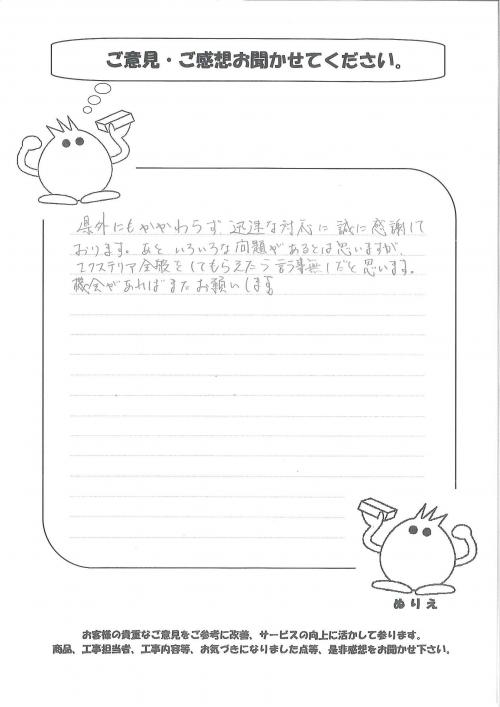 ご意見・ご感想お聞かせてください。
県外にもかかわらず 迅速な対応に 誠に感謝して
おります。あと いろいろな問題があるとは思いますが、
エクステリア全般をしてもらえたら 言う事無しだと思います。
機会があればまたお願いします
ぬりえ
お客様の貴重なご意見をご参考に改善、サービスの向上に活かして参ります。
商品、工事担当者、工事内容等、お気づきになりました点等、是非感想をお聞かせ下さい。